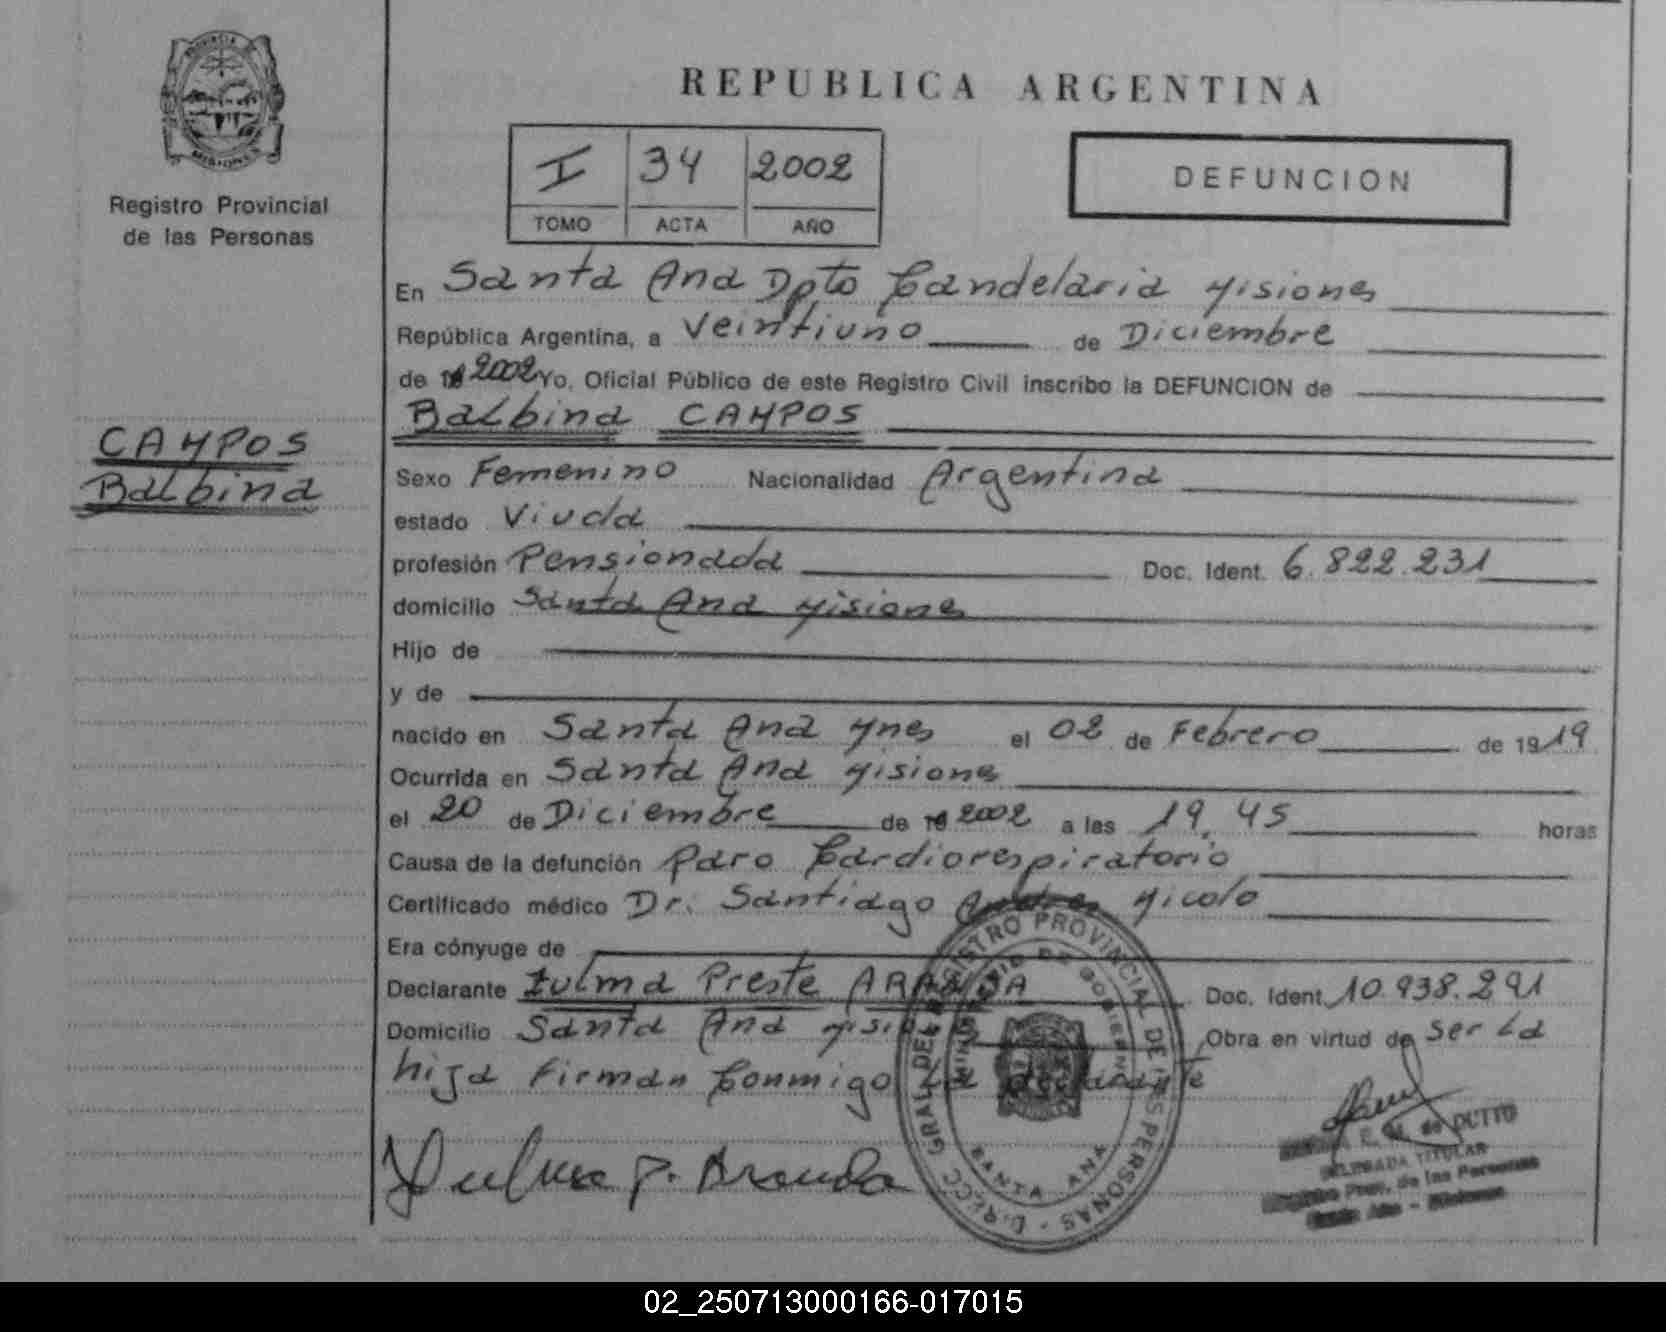 PROVINCIA DE
MISIONES
Registro Provincial
de las Personas
CAMPOS
Balbina
REPUBLICA ARGENTINA
I 34 2002
TOMO ACTA AÑO
DEFUNCION
En Santa Ana Dpto Candelaria Misiones
República Argentina, a Veintiuno de Diciembre
de 19 2002 Yo, Oficial Público de este Registro Civil inscribo la DEFUNCION de
Balbina CAMPOS
Sexo Femenino Nacionalidad Argentina
estado Viuda
profesión Pensionada Doc. Ident. 6.822.231
domicilio Santa Ana Misiones
Hijo de
y de
nacido en Santa Ana Mnes el 02 de Febrero de 1919
Ocurrida en Santa Ana Misiones
el 20 de Diciembre de 19 2002 a las 19,45 horas
Causa de la defunción Paro Cardiorespiratorio
Certificado médico Dr. Santiago Andres Micolo
Era cónyuge de
Declarante Zulma Preste ARANDA Doc. Ident. 10.938.291
Domicilio Santa Ana Misiones Obra en virtud de Ser La
hija Firman Conmigo La declarante
Zulma P. Aranda
DIRECC. GRAL. DEL REGISTRO PROVINCIAL DE LAS PERSONAS
MINISTERIO DE GOBIERNO
SANTA ANA
E. M. de DUTTO
DELEGADA TITULAR
Registro Prov. de las Personas
Santa Ana - Misiones
02_250713000166-017015